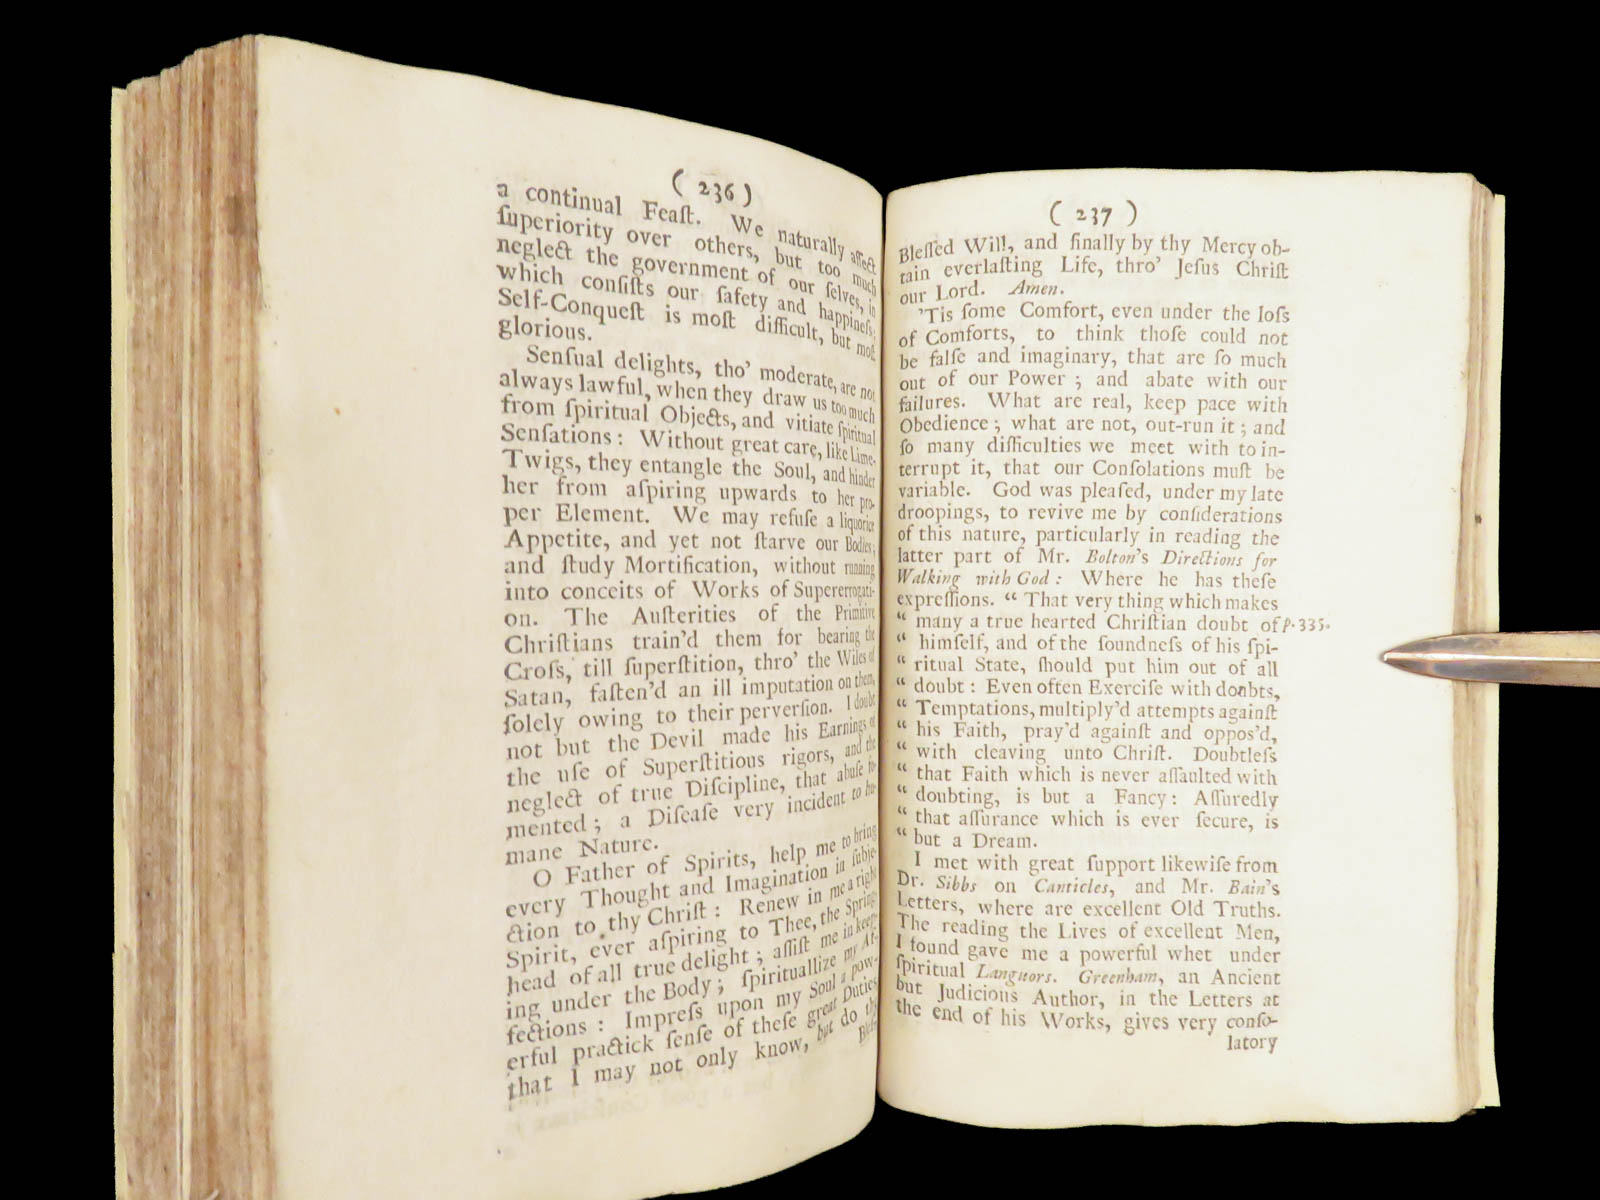 ( 236 )
a continual Feaſt. We naturally affect
ſuperiority over others, but too much
neglect the government of our ſelves, in
which conſiſts our ſafety and happineſs;
Self-Conqueſt is moſt difficult, but moſt
glorious.
Senſual delights, tho' moderate, are not
always lawful, when they draw us too much
from ſpiritual Objects, and vitiate ſpiritual
Senſations: Without great care, like Lime-
Twigs, they entangle the Soul, and hinder
her from aſpiring upwards to her pro-
per Element. We may refuſe a liquorice
Appetite, and yet not ſtarve our Bodies;
and ſtudy Mortification, without running
into conceits of Works of Supererrogati-
on. The Auſterities of the Primitive
Chriſtians train'd them for bearing the
Croſs, till ſuperſtition, thro' the Wiles of
Satan, faſten'd an ill imputation on them,
ſolely owing to their perverſion. I doubt
not but the Devil made his Earnings of
the uſe of Superſtitious rigors, and the
neglect of true Diſcipline, that abuſe fo-
mented; a Diſeaſe very incident to hu-
mane Nature.
O Father of Spirits, help me to bring
every Thought and Imagination in ſubje-
ction to thy Chriſt: Renew in me a right
Spirit, ever aſpiring to Thee, the Spring-
head of all true delight; aſſiſt me in keep-
ing under the Body; ſpirituallize my Af-
fections: Impreſs upon my Soul a pow-
erful practick ſenſe of theſe great Duties
that I may not only know, but do thy
Bleſ-
( 237 )
Bleſſed Will, and finally by thy Mercy ob-
tain everlaſting Life, thro' Jeſus Chriſt
our Lord. Amen.
'Tis ſome Comfort, even under the loſs
of Comforts, to think thoſe could not
be falſe and imaginary, that are ſo much
out of our Power; and abate with our
failures. What are real, keep pace with
Obedience; what are not, out-run it; and
ſo many difficulties we meet with to in-
terrupt it, that our Conſolations muſt be
variable. God was pleaſed, under my late
droopings, to revive me by conſiderations
of this nature, particularly in reading the
latter part of Mr. Bolton's Directions for
Walking with God: Where he has theſe
expreſſions. “ That very thing which makes
“ many a true hearted Chriſtian doubt of p. 335.
“ himſelf, and of the ſoundneſs of his ſpi-
“ ritual State, ſhould put him out of all
“ doubt: Even often Exerciſe with doubts,
“ Temptations, multiply'd attempts againſt
“ his Faith, pray'd againſt and oppos'd,
“ with cleaving unto Chriſt. Doubtleſs
“ that Faith which is never aſſaulted with
“ doubting, is but a Fancy: Aſſuredly
“ that aſſurance which is ever ſecure, is
“ but a Dream.
I met with great ſupport likewiſe from
Dr. Sibbs on Canticles, and Mr. Bain's
Letters, where are excellent Old Truths.
The reading the Lives of excellent Men,
I found gave me a powerful whet under
ſpiritual Languors. Greenham, an Ancient
but Judicious Author, in the Letters at
the end of his Works, gives very conſo-
latory